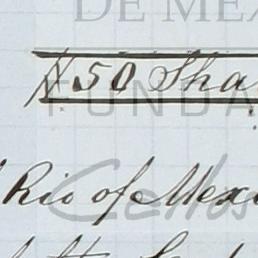 DE MEX
$50 Sha
FUNDA
Rio of Mexi